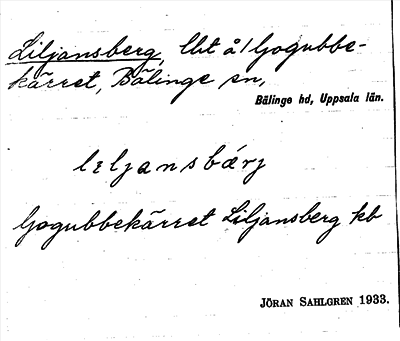 Liljansberg, lht å/Gogubbe-
kärret, Bälinge sn,
Bälinge hd, Uppsala län.
lɩljansbærj
Gogubbekärret Liljansberg kb
JÖRAN SAHLGREN 1933.